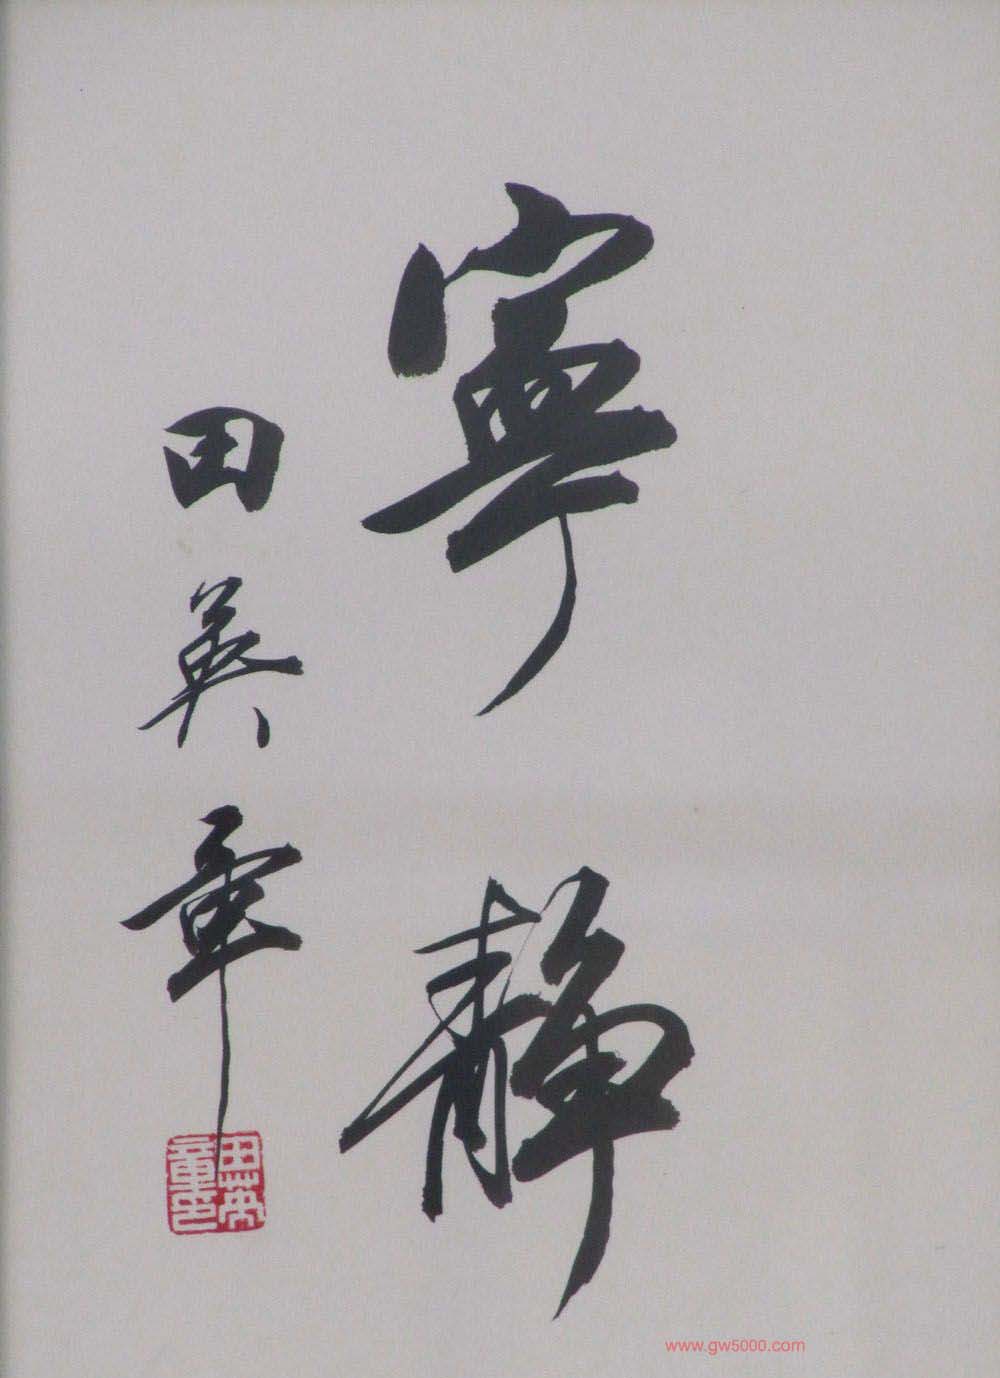 寧靜
田英章
田英章印
www.gw5000.com